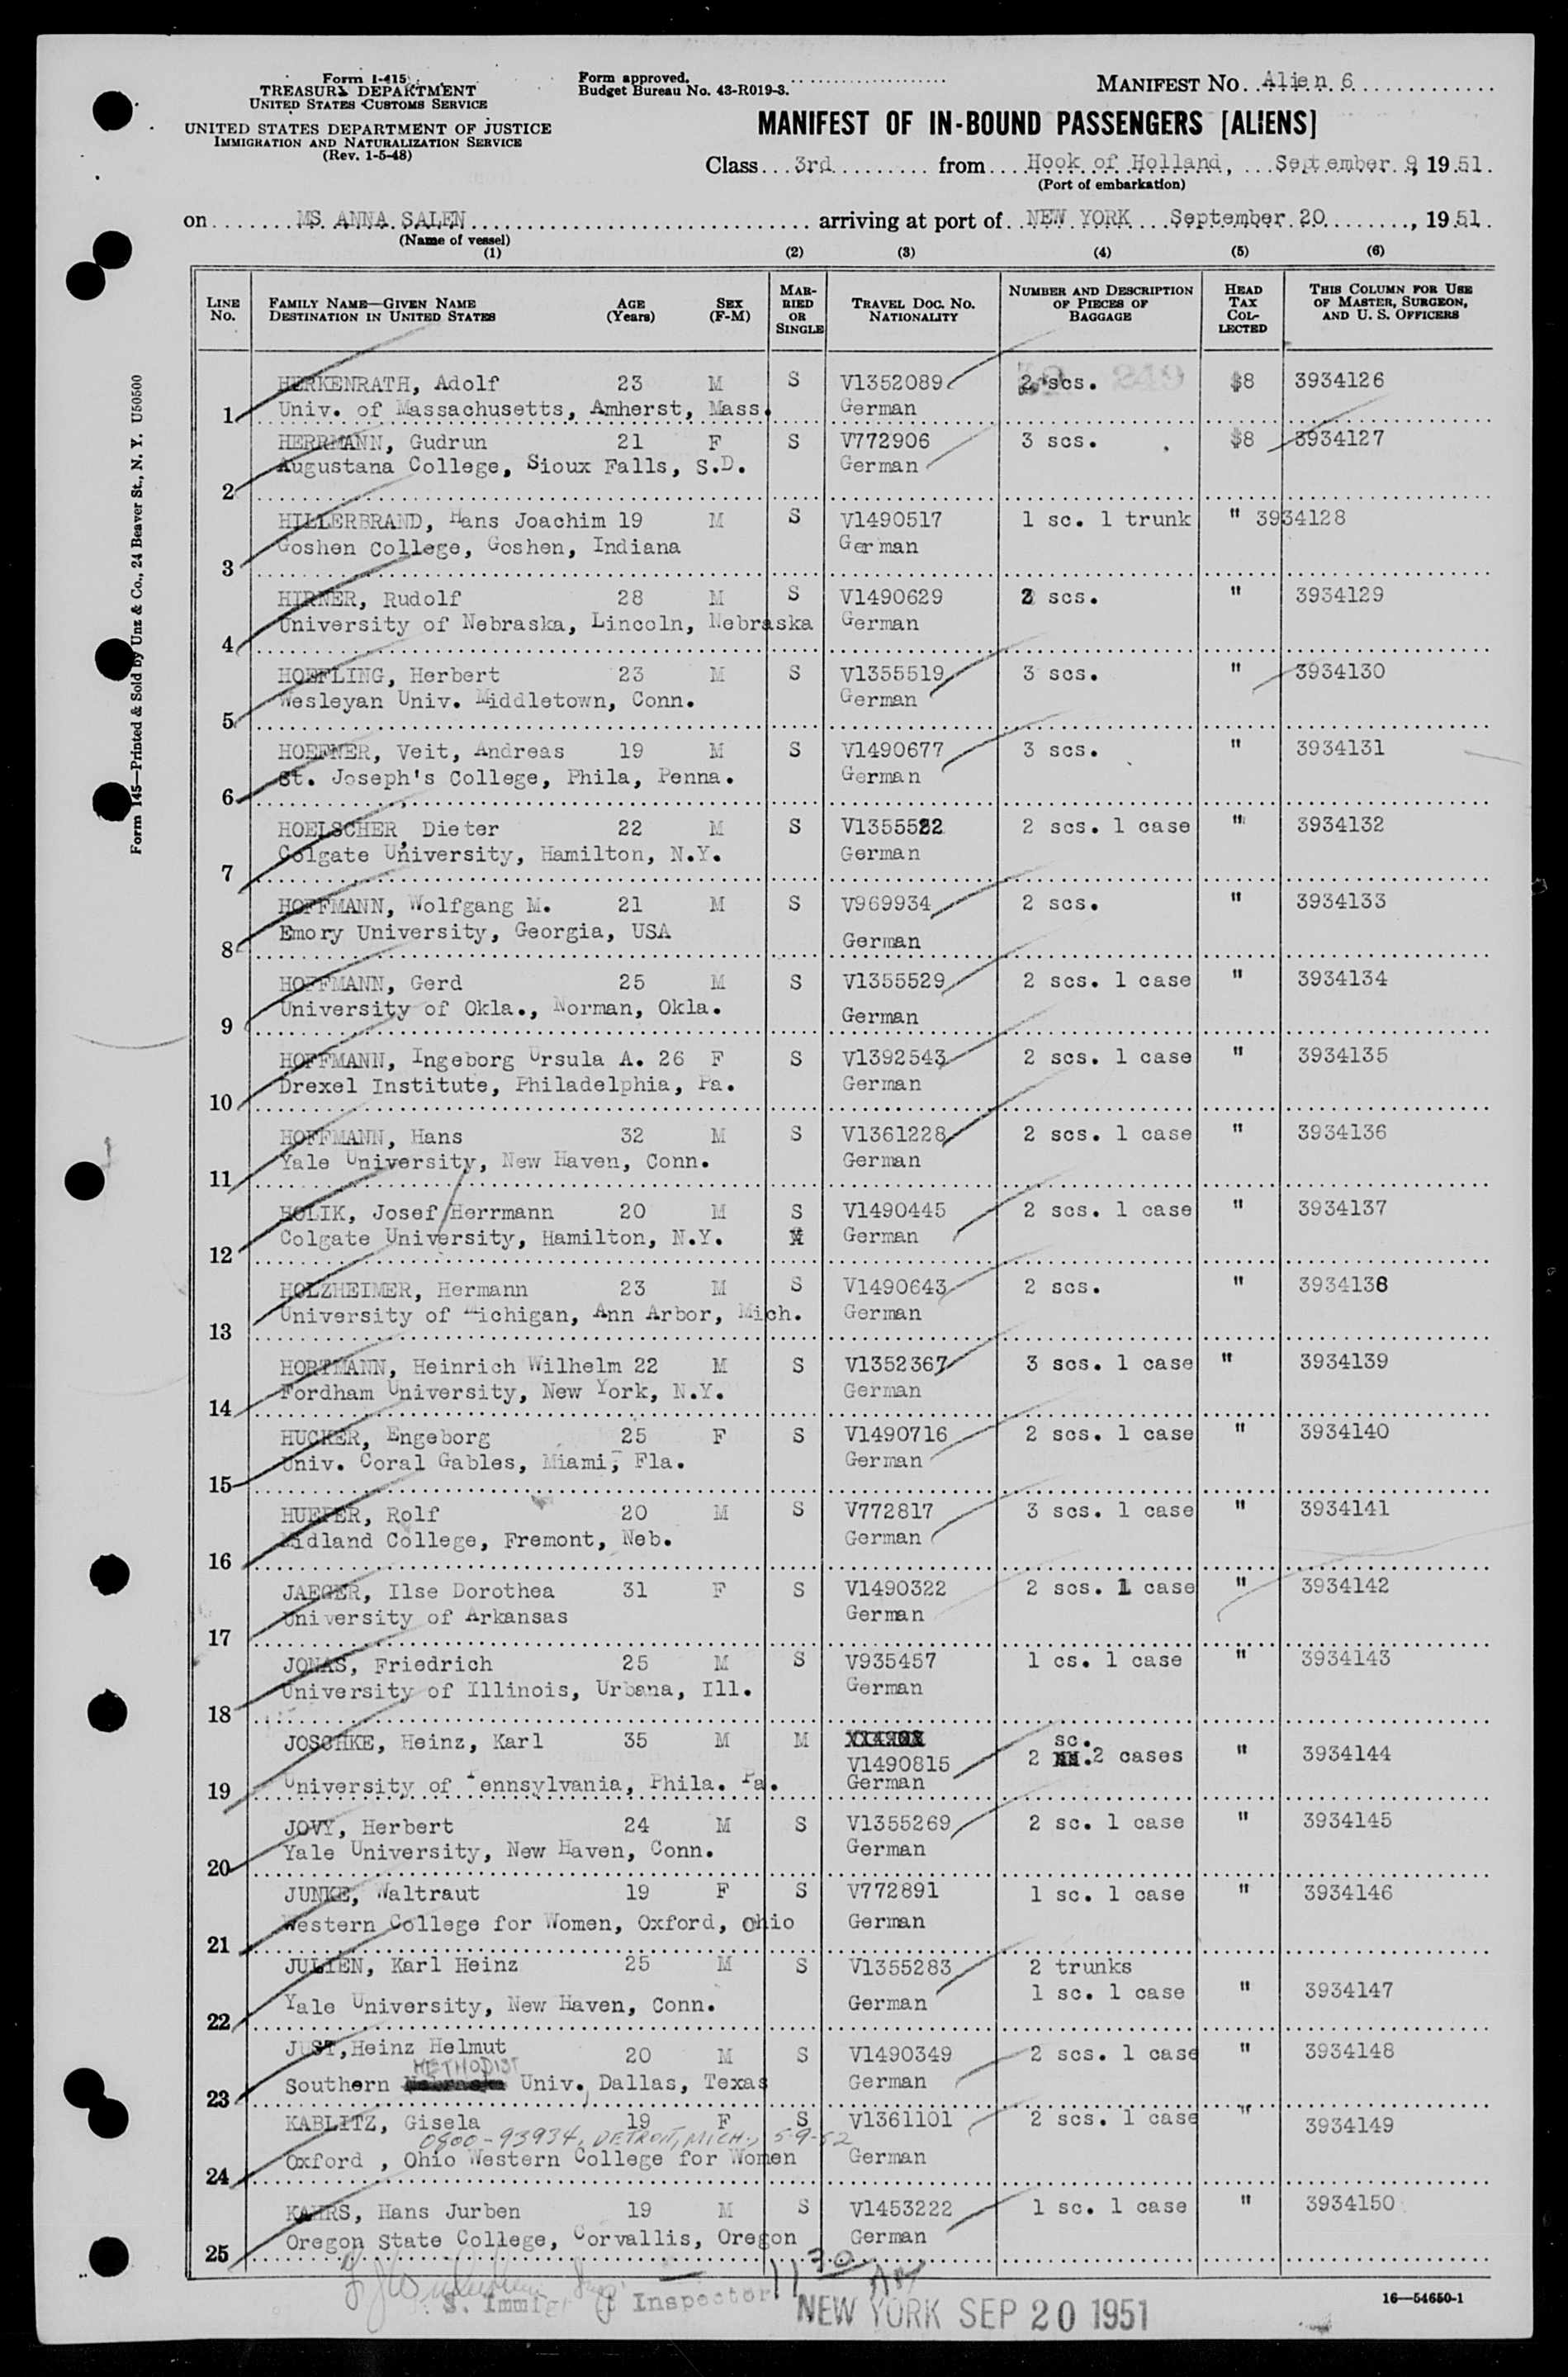 Form I-415
TREASURY DEPARTMENT
UNITED STATES CUSTOMS SERVICE
UNITED STATES DEPARTMENT OF JUSTICE
IMMIGRATION AND NATURALIZATION SERVICE
(Rev. 1-5-48)
Form approved.
Budget Bureau No. 43-R019-3.
MANIFEST No. Alien 6
MANIFEST OF IN-BOUND PASSENGERS [ALIENS]
Class 3rd from Hook of Holland, September 9, 1951.
(Port of embarkation)
on MS ANNA SALEN arriving at port of NEW YORK September 20, 1951.
(Name of vessel)
(1) (2) (3) (4) (5) (6)
LINE No. FAMILY NAME—GIVEN NAME DESTINATION IN UNITED STATES AGE (Years) SEX (F-M) MARRIED OR SINGLE TRAVEL DOC. NO. NATIONALITY NUMBER AND DESCRIPTION OF PIECES OF BAGGAGE HEAD TAX COLLECTED THIS COLUMN FOR USE OF MASTER, SURGEON, AND U. S. OFFICERS
Form 145—Printed & Sold by Unz & Co., 24 Beaver St., N. Y. U50500
HERKENRATH, Adolf 23 M S V1352089 2 scs. $8 3934126
1 Univ. of Massachusetts, Amherst, Mass. German
HERRMANN, Gudrun 21 F S V772906 3 scs. $8 3934127
2 Augustana College, Sioux Falls, S.D. German
HILLERBRAND, Hans Joachim 19 M S V1490517 1 sc. 1 trunk " 3934128
3 Goshen College, Goshen, Indiana German
HIRNER, Rudolf 28 M S V1490629 scs. " 3934129
4 University of Nebraska, Lincoln, Nebraska German
HOEFLING, Herbert 23 M S V1355519 3 scs. " 3934130
5 Wesleyan Univ. Middletown, Conn. German
HOEFNER, Veit, Andreas 19 M S V1490677 3 scs. " 3934131
6 St. Joseph's College, Phila, Penna. German
HOELSCHER, Dieter 22 M S V1355522 2 scs. 1 case " 3934132
7 Colgate University, Hamilton, N.Y. German
HOFFMANN, Wolfgang M. 21 M S V969934 2 scs. " 3934133
8 Emory University, Georgia, USA German
HOFFMANN, Gerd 25 M S V1355529 2 scs. 1 case " 3934134
9 University of Okla., Norman, Okla. German
HOFFMANN, Ingeborg Ursula A. 26 F S V1392543 2 scs. 1 case " 3934135
10 Drexel Institute, Philadelphia, Pa. German
HOFFMANN, Hans 32 M S V1361228 2 scs. 1 case " 3934136
11 Yale University, New Haven, Conn. German
HOLIK, Josef Herrmann 20 M S V1490445 2 scs. 1 case " 3934137
12 Colgate University, Hamilton, N.Y. German
HOLZHEIMER, Hermann 23 M S V1490643 2 scs. " 3934138
13 University of Michigan, Ann Arbor, Mich. German
HORTMANN, Heinrich Wilhelm 22 M S V1352367 3 scs. 1 case " 3934139
14 Fordham University, New York, N.Y. German
HUCKER, Engeborg 25 F S V1490716 2 scs. 1 case " 3934140
15 Univ. Coral Gables, Miami, Fla. German
HUEPER, Rolf 20 M S V772817 3 scs. 1 case " 3934141
16 Midland College, Fremont, Neb. German
JAEGER, Ilse Dorothea 31 F S V1490322 2 scs. 1 case " 3934142
17 University of Arkansas German
JONAS, Friedrich 25 M S V935457 1 cs. 1 case " 3934143
18 University of Illinois, Urbana, Ill. German
JOSCHKE, Heinz, Karl 35 M M V1490815 2 sc. 2 cases " 3934144
19 University of Pennsylvania, Phila. Pa. German
JOVY, Herbert 24 M S V1355269 2 sc. 1 case " 3934145
20 Yale University, New Haven, Conn. German
JUNKE, Waltraut 19 F S V772891 1 sc. 1 case " 3934146
21 Western College for Women, Oxford, Ohio German
JULIEN, Karl Heinz 25 M S V1355283 2 trunks
1 sc. 1 case " 3934147
22 Yale University, New Haven, Conn. German
JUST, Heinz Helmut 20 M S V1490349 2 scs. 1 case " 3934148
METHODIST
23 Southern Univ. Dallas, Texas German
KABLITZ, Gisela 19 F S V1361101 2 scs. 1 case " 3934149
0800-93934, DETROIT, MICH., 5-9-52
24 Oxford , Ohio Western College for Women German
KAHRS, Hans Jurben 19 M S V1453222 1 sc. 1 case " 3934150
25 Oregon State College, Corvallis, Oregon German
1130 AM
S. Immig Inspector
NEW YORK SEP 20 1951
16—54650-1